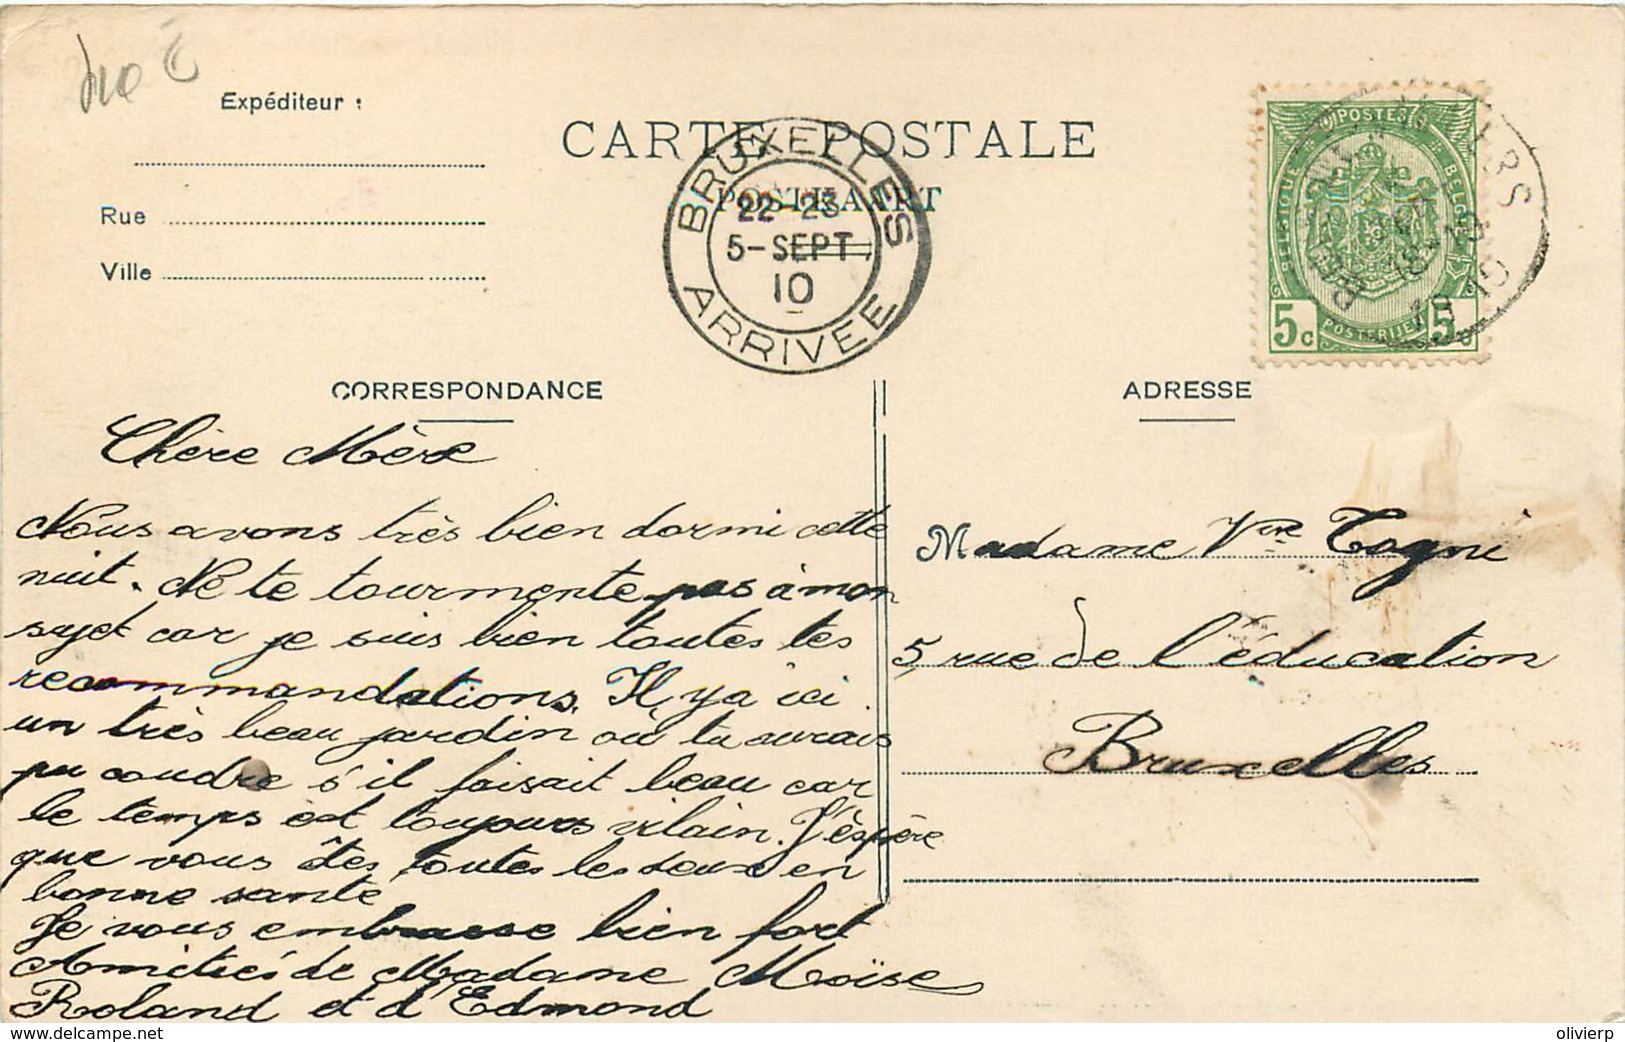 Expéditeur :
Rue
Ville
CARTE POSTALE
POSTKAART
BRUXELLES
22-23
5-SEPT.
10
ARRIVEE
POSTES
BELGIQUE
BELGIË
POSTERIJEN
5c 5c
CORRESPONDANCE
ADRESSE
Chère Mère
Nous avons très bien dormi cette
nuit. Ne te tourmente pas à mon
sujet car je suis bien toutes tes
recommandations. Il y a ici
un très beau jardin où tu aurais
pu coudre s'il faisait beau car
le temps est toujours vilain. J'éspère
que vous êtes toutes les deux en
bonne santé
Je vous embrasse bien fort
Amitiés de Madame Moïse
Roland et d'Edmond
Madame Vve Togni
5, rue de l'éducation
Bruxelles
www.delcampe.net
olivierp